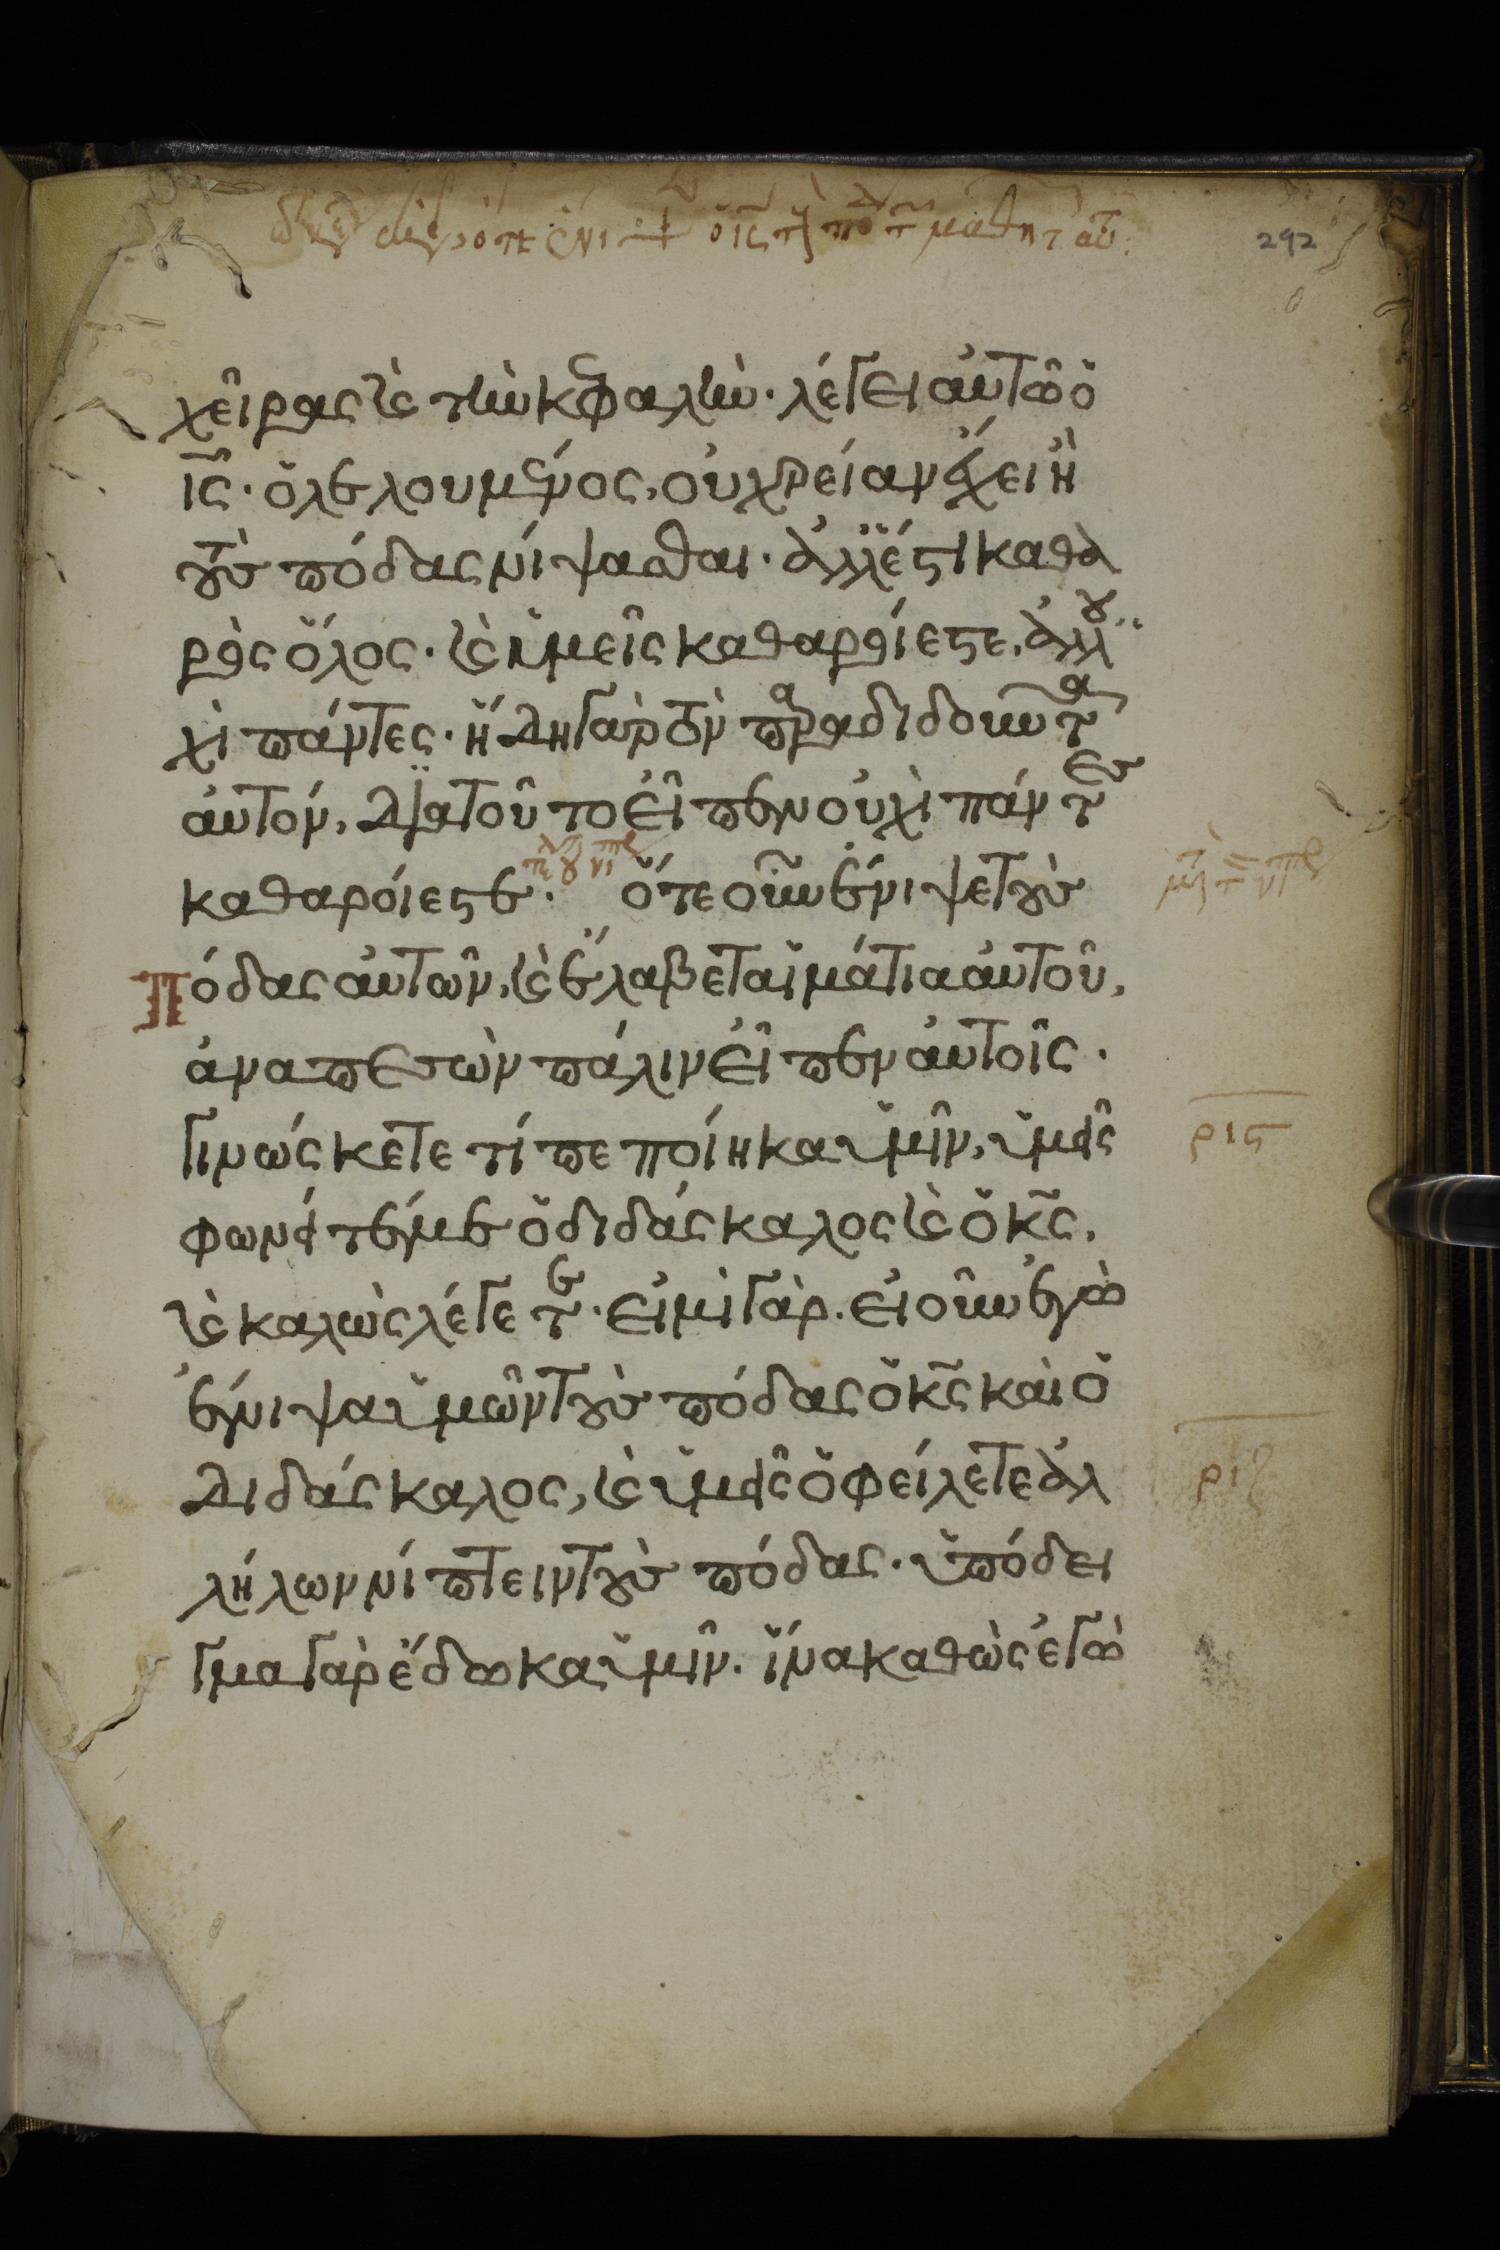 292
χεῖρας καὶ τὴν κεφαλήν· λέγει αὐτῶ ὁ
ις· ὁ λελουμένος, οὐ χρείαν ἔχει ἢ
τοὺς πόδας νίψασθαι· ἀλλ' ἔστι καθα
ρὸς ὅλος· καὶ ὑμεῖς καθαροί εστε, ἀλλ' οὐ
χὶ πάντες· ἤδη γὰρ τὸν παραδιδοῦντα
αὐτόν, διατοῦτο εἶπεν οὐχὶ πάντες
καθαροί εστε· ὅτε οὖν ἔνιψε τοὺς
πόδας αὐτῶν, καὶ ἔλαβε τα ἱμάτια αὐτοῦ,
ἀναπεσὼν πάλιν εἶπεν αὐτοῖς·
Γινώσκετε τί πεποίηκα ὑμῖν, ὑμεῖς
φωνεῖτέ με ὁ διδάσκαλος καὶ ὁ κς,
καὶ καλὼς λέγετε· εἰμὶ γὰρ· εἰ οὖν ἐγὼ
ἔνιψα ὑμῶν τοὺς πόδας ὁ κς καὶ ὁ
διδάσκαλος, καὶ ὑμεῖς ὀφείλετε ἀλ
λήλων νίπτειν τοὺς πόδας· ὑπόδει
γμα γὰρ ἔδωκα ὑμῖν· ἵνα καθὼς ἐγὼ
ρις
ριζ